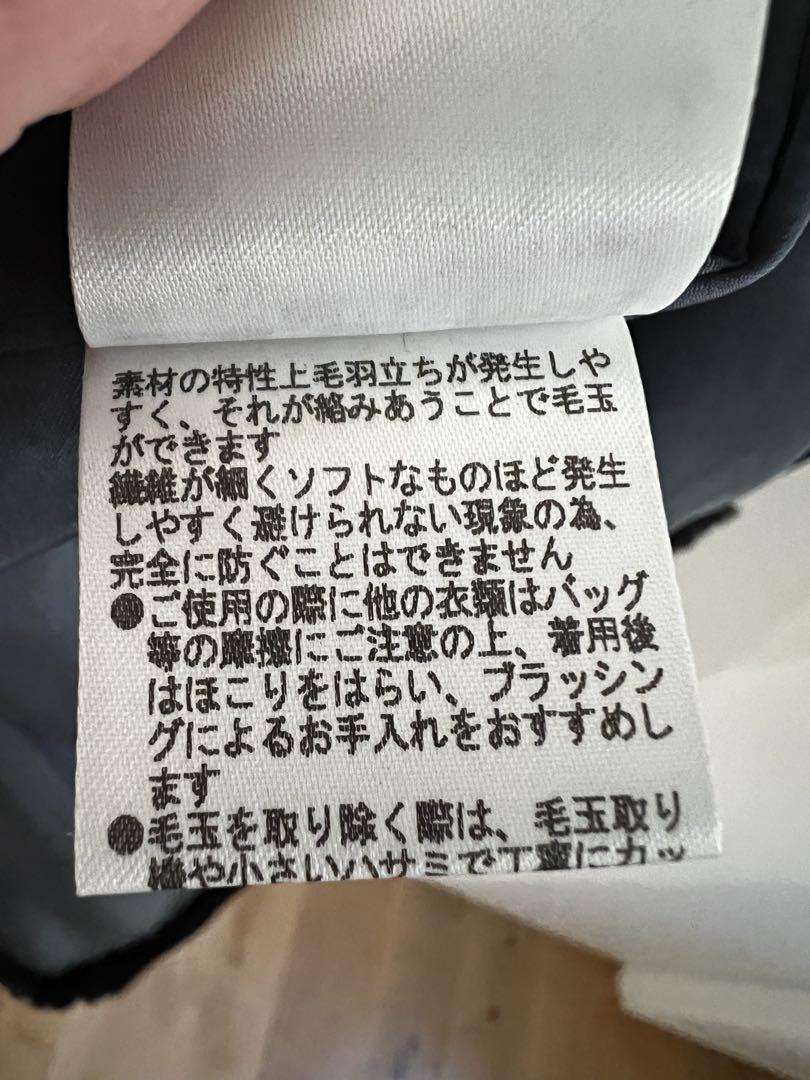 素材の特性上毛羽立ちが発生しや
すく、それが絡みあうことで毛玉
ができます
繊維が細くソフトなものほど発生
しやすく避けられない現象の為、
完全に防ぐことはできません
●ご使用の際に他の衣類はバッグ
等の摩擦にご注意の上、着用後
はほこりをはらい、ブラッシン
グによるお手入れをおすすめし
ます
●毛玉を取り除く際は、毛玉取り
機や小さいハサミで丁寧にカッ